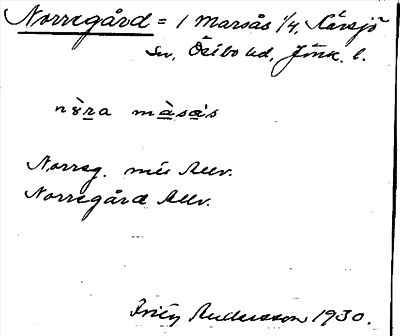 Norregård = 1 Marsås 1/4, Kärsjö
sn, Östbo hd, Jönk. l.
nòra màsás
Norreg. mts Allv.
Norregård Allv.
Andersson 1930.